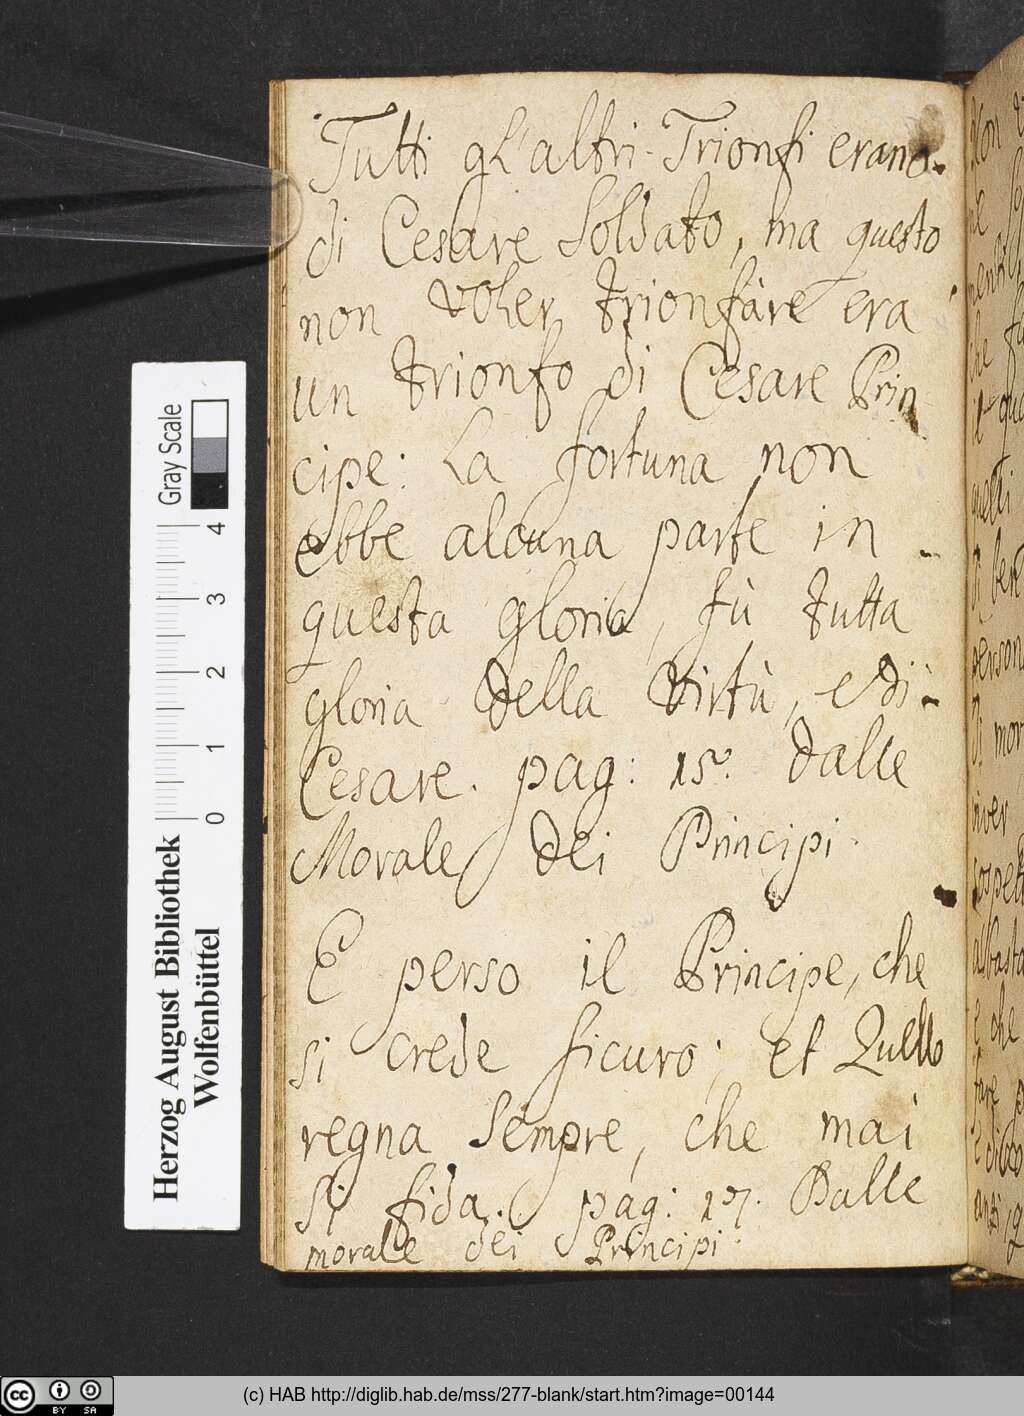 Tutti gl'altri Trionfi erano
di Cesare Soldato, ma questo
non voler trionfare era
un trionfo di Cesare Prin
cipe: La fortuna non
ebbe alcuna parte in
questa gloria, fù tutta
gloria della virtù, e di
Cesare. pag: 15. dalle
Morale dei Principi.
E perso il Principe, che
si crede sicuro; et Quello
regna sempre, che mai
si fida. pag: 17. Dalle
morale dei Principi.
Gray Scale
4
3
2
1
0
Herzog August Bibliothek
Wolfenbüttel
cc BY SA
(c) HAB http://diglib.hab.de/mss/277-blank/start.htm?image=00144